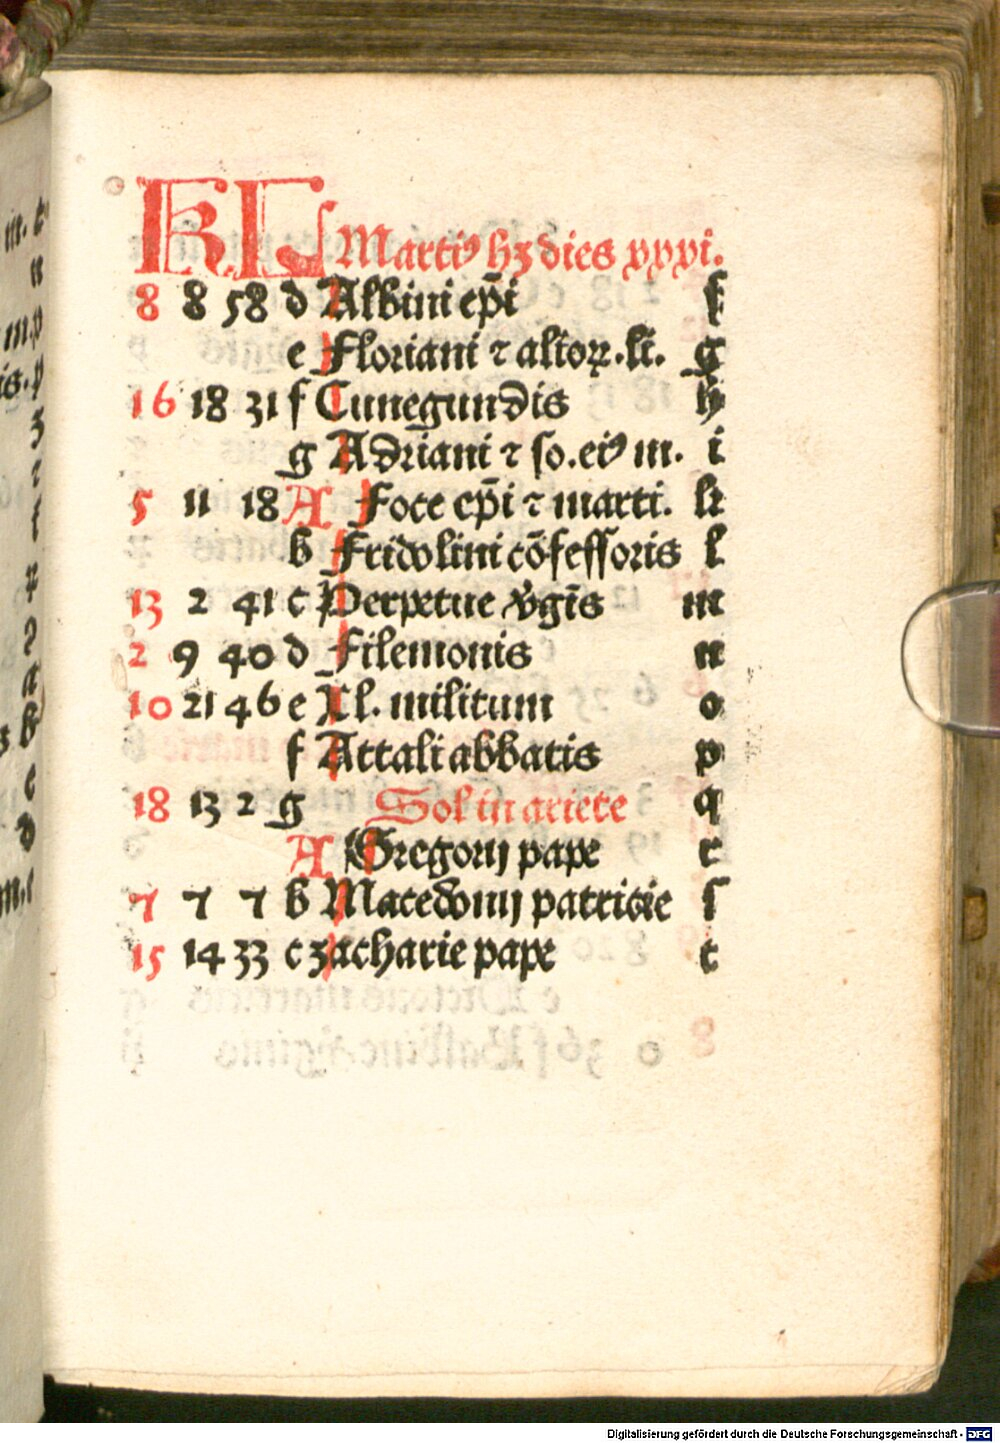 KL Martiꝰ hꝫ dies xxxi.
8 8 58 d Albini ep̄i f
e Floriani ⁊ alioꝝ. lt. g
16 18 31 f Cunegundis h
g Adriani ⁊ so. eiꝰ m. i
5 11 18 A Foce ep̄i ⁊ marti. k
b Fridolini cōfessoris l
13 2 41 c Perpetue v̄gīs m
2 9 40 d Filemonis n
10 21 46 e Xl. militum o
f Attali abbatis p
18 13 2 g Sol in ariete q
A Gregorij pape r
7 7 7 b Macedonij patricie s
15 14 33 c zacharie pape t
Digitalisierung gefördert durch die Deutsche Forschungsgemeinschaft - DFG